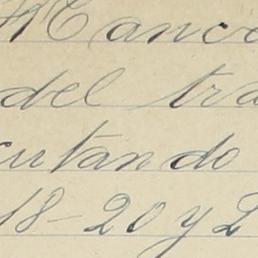 Manco
del tra
cutando
18-20 y 2